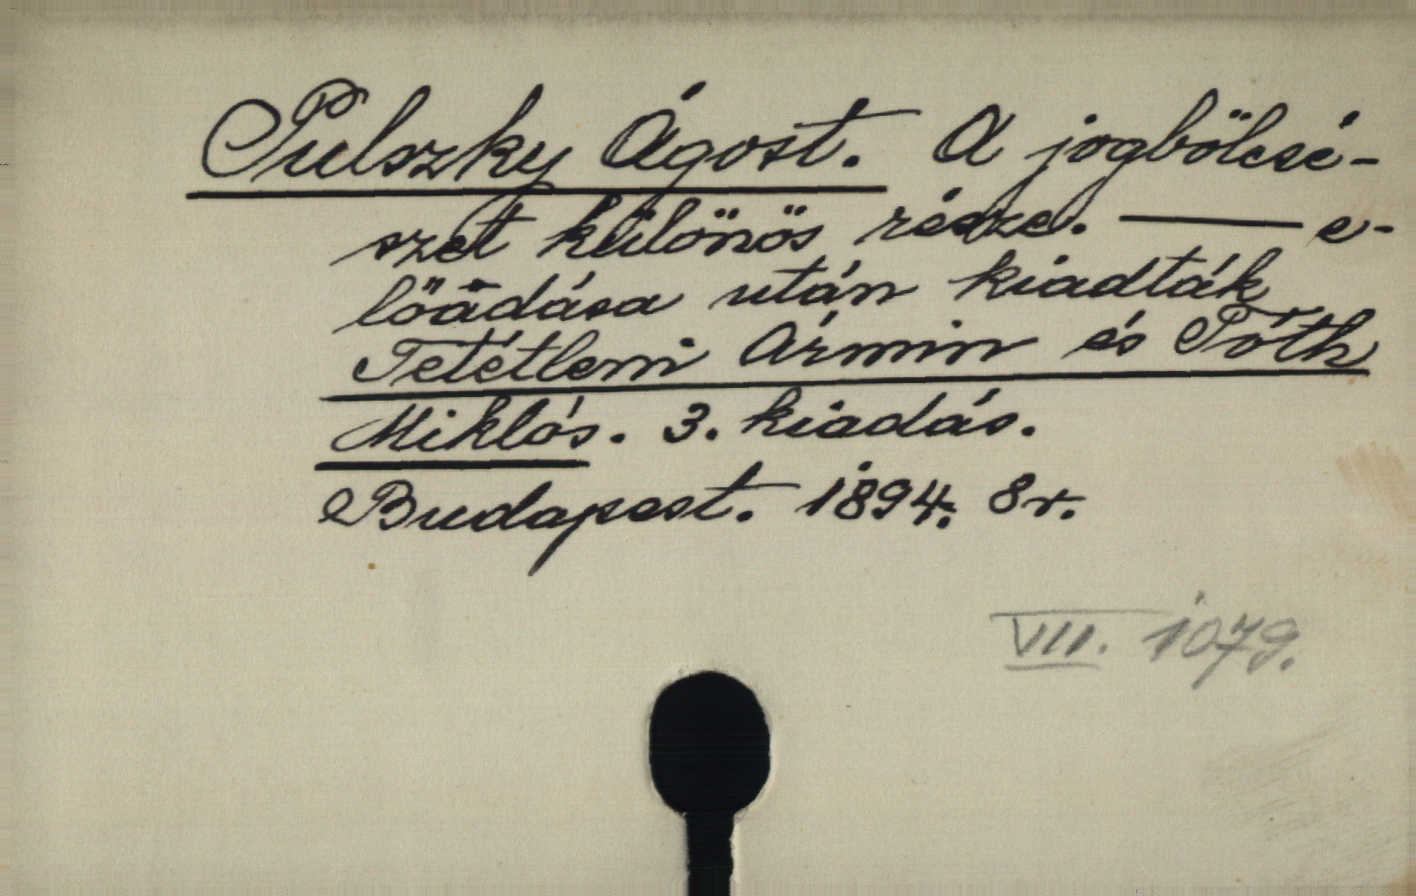 Pulszky Ágost. A jogbölcsé-
szet különös része. — e-
lőadása után kiadták
Tetétleni Ármin és Tóth
Miklós. 3. kiadás.
Budapest. 1894. 8r.
VIII. 1079.